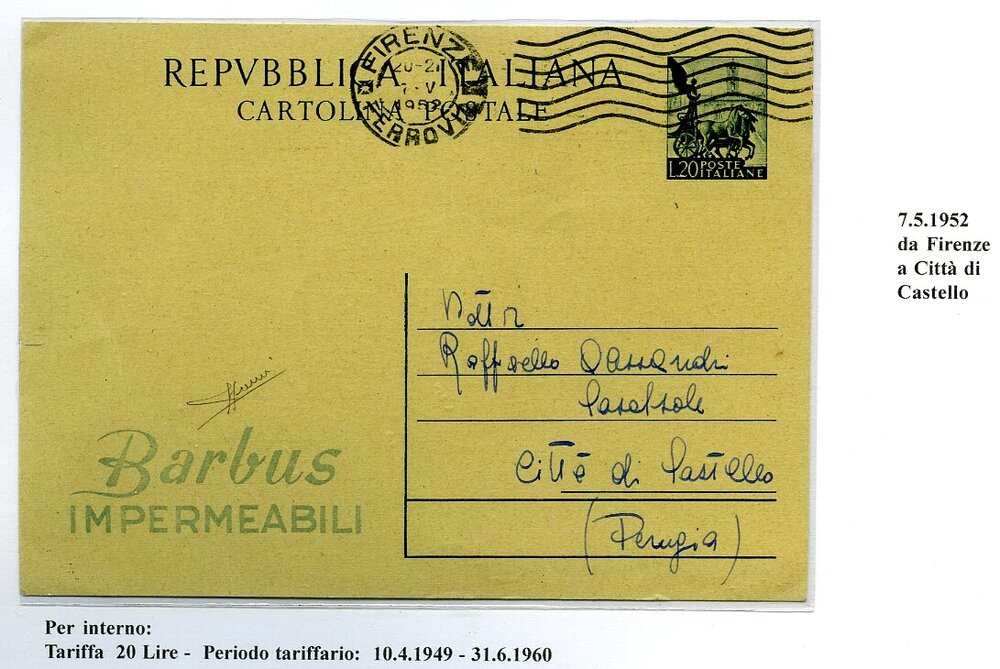 REPVBBLICA ITALIANA
CARTOLINA POSTALE
FIRENZE
20-21
7-V
1952
FERROVIA
L.20 POSTE ITALIANE
7.5.1952
da Firenze
a Città di
Castello
Dott
Raffaello
Città di Castello
(Perugia)
Barbus
IMPERMEABILI
Per interno:
Tariffa 20 Lire - Periodo tariffario: 10.4.1949 - 31.6.1960